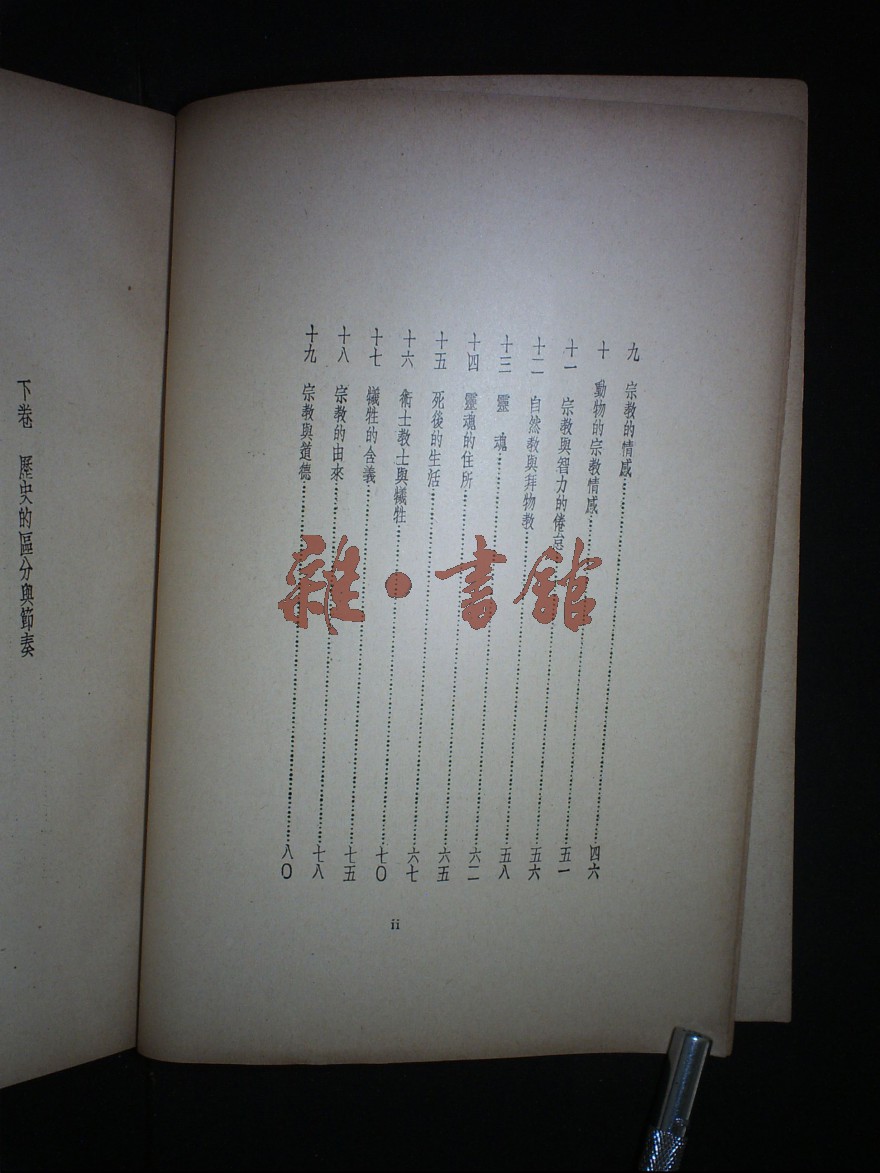 九 宗教的情感……四六
十 動物的宗教情感……五一
十一 宗教與智力的倦……五六
十二 自然教與拜物教……五八
十三 靈 魂……六二
十四 靈魂的住所……六五
十五 死後的生活……六七
十六 術士教士與犧牲……七〇
十七 犧牲的含義……七五
十八 宗教的由來……七八
十九 宗教與道德……八〇
ii
下卷 歷史的區分與節奏
雜·書館